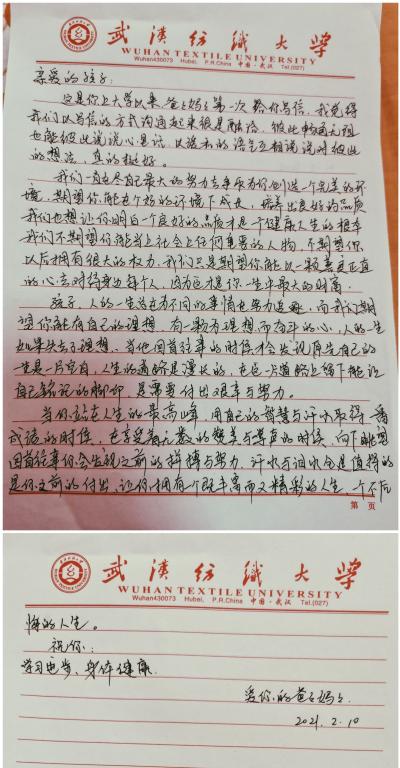 武汉纺织大学
WUHAN TEXTILE UNIVERSITY
Wuhan430073 Hubei, P.R.China 中国·武汉 Tel.(027)
亲爱的孩子:
这是你上大学以来,爸爸妈妈第一次给你写信,我觉得
我们以写信的方式沟通起来很是融洽,彼此畅通无阻
也能彼此说说心里话,以缓和的语气互相说说对彼此
的想法,真的挺好。
我们一直尽自己最大的努力去争取为你创造一个完美的环
境,期望你能在个好的环境下成长,培养出良好的品质
我们也想让你明白一个良好的品质才是一个健康人生的根本
我们不期望你能当上社会上任何事界的人物,不期望你
以后拥有很大的权力,我们只是期望你能以一颗善良正直
的心去对待身边每个人,因为这才是你一生中最大的财富。
孩子,人的一生总在为不同的事情也努力追逐,而我们期
望你能有自己的理想,有一颗为理想而奋斗的心,人的一生
如果失去了理想,当他回首往事的时候才会发现原先自己的
一生是一片空白,人生的道路是漫长的,在这一片道路上留下能让
自己铭记的脚印,是需要付出艰辛与努力。
当你站在人生的最高峰,用自己的智慧与汗水取得一番
成绩的时候,在享受着无数的赞美与掌声的时候,向下眺望
回首往事你会发现之前的拼搏与努力,汗水与泪水全是值得的
是你之前的付出,让你拥有个既丰富而又精彩的人生,一个不后
第 页
武汉纺织大学
WUHAN TEXTILE UNIVERSITY
Wuhan430073 Hubei, P.R.China 中国·武汉 Tel.(027)
悔的人生。
祝你:
学习进步、身体健康
爱你的爸爸妈妈
2021.2.10